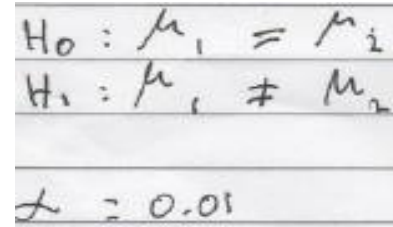 H₀ : μ₁ = μ₂
H₁ : μ₁ ≠ μ₂
α = 0.01